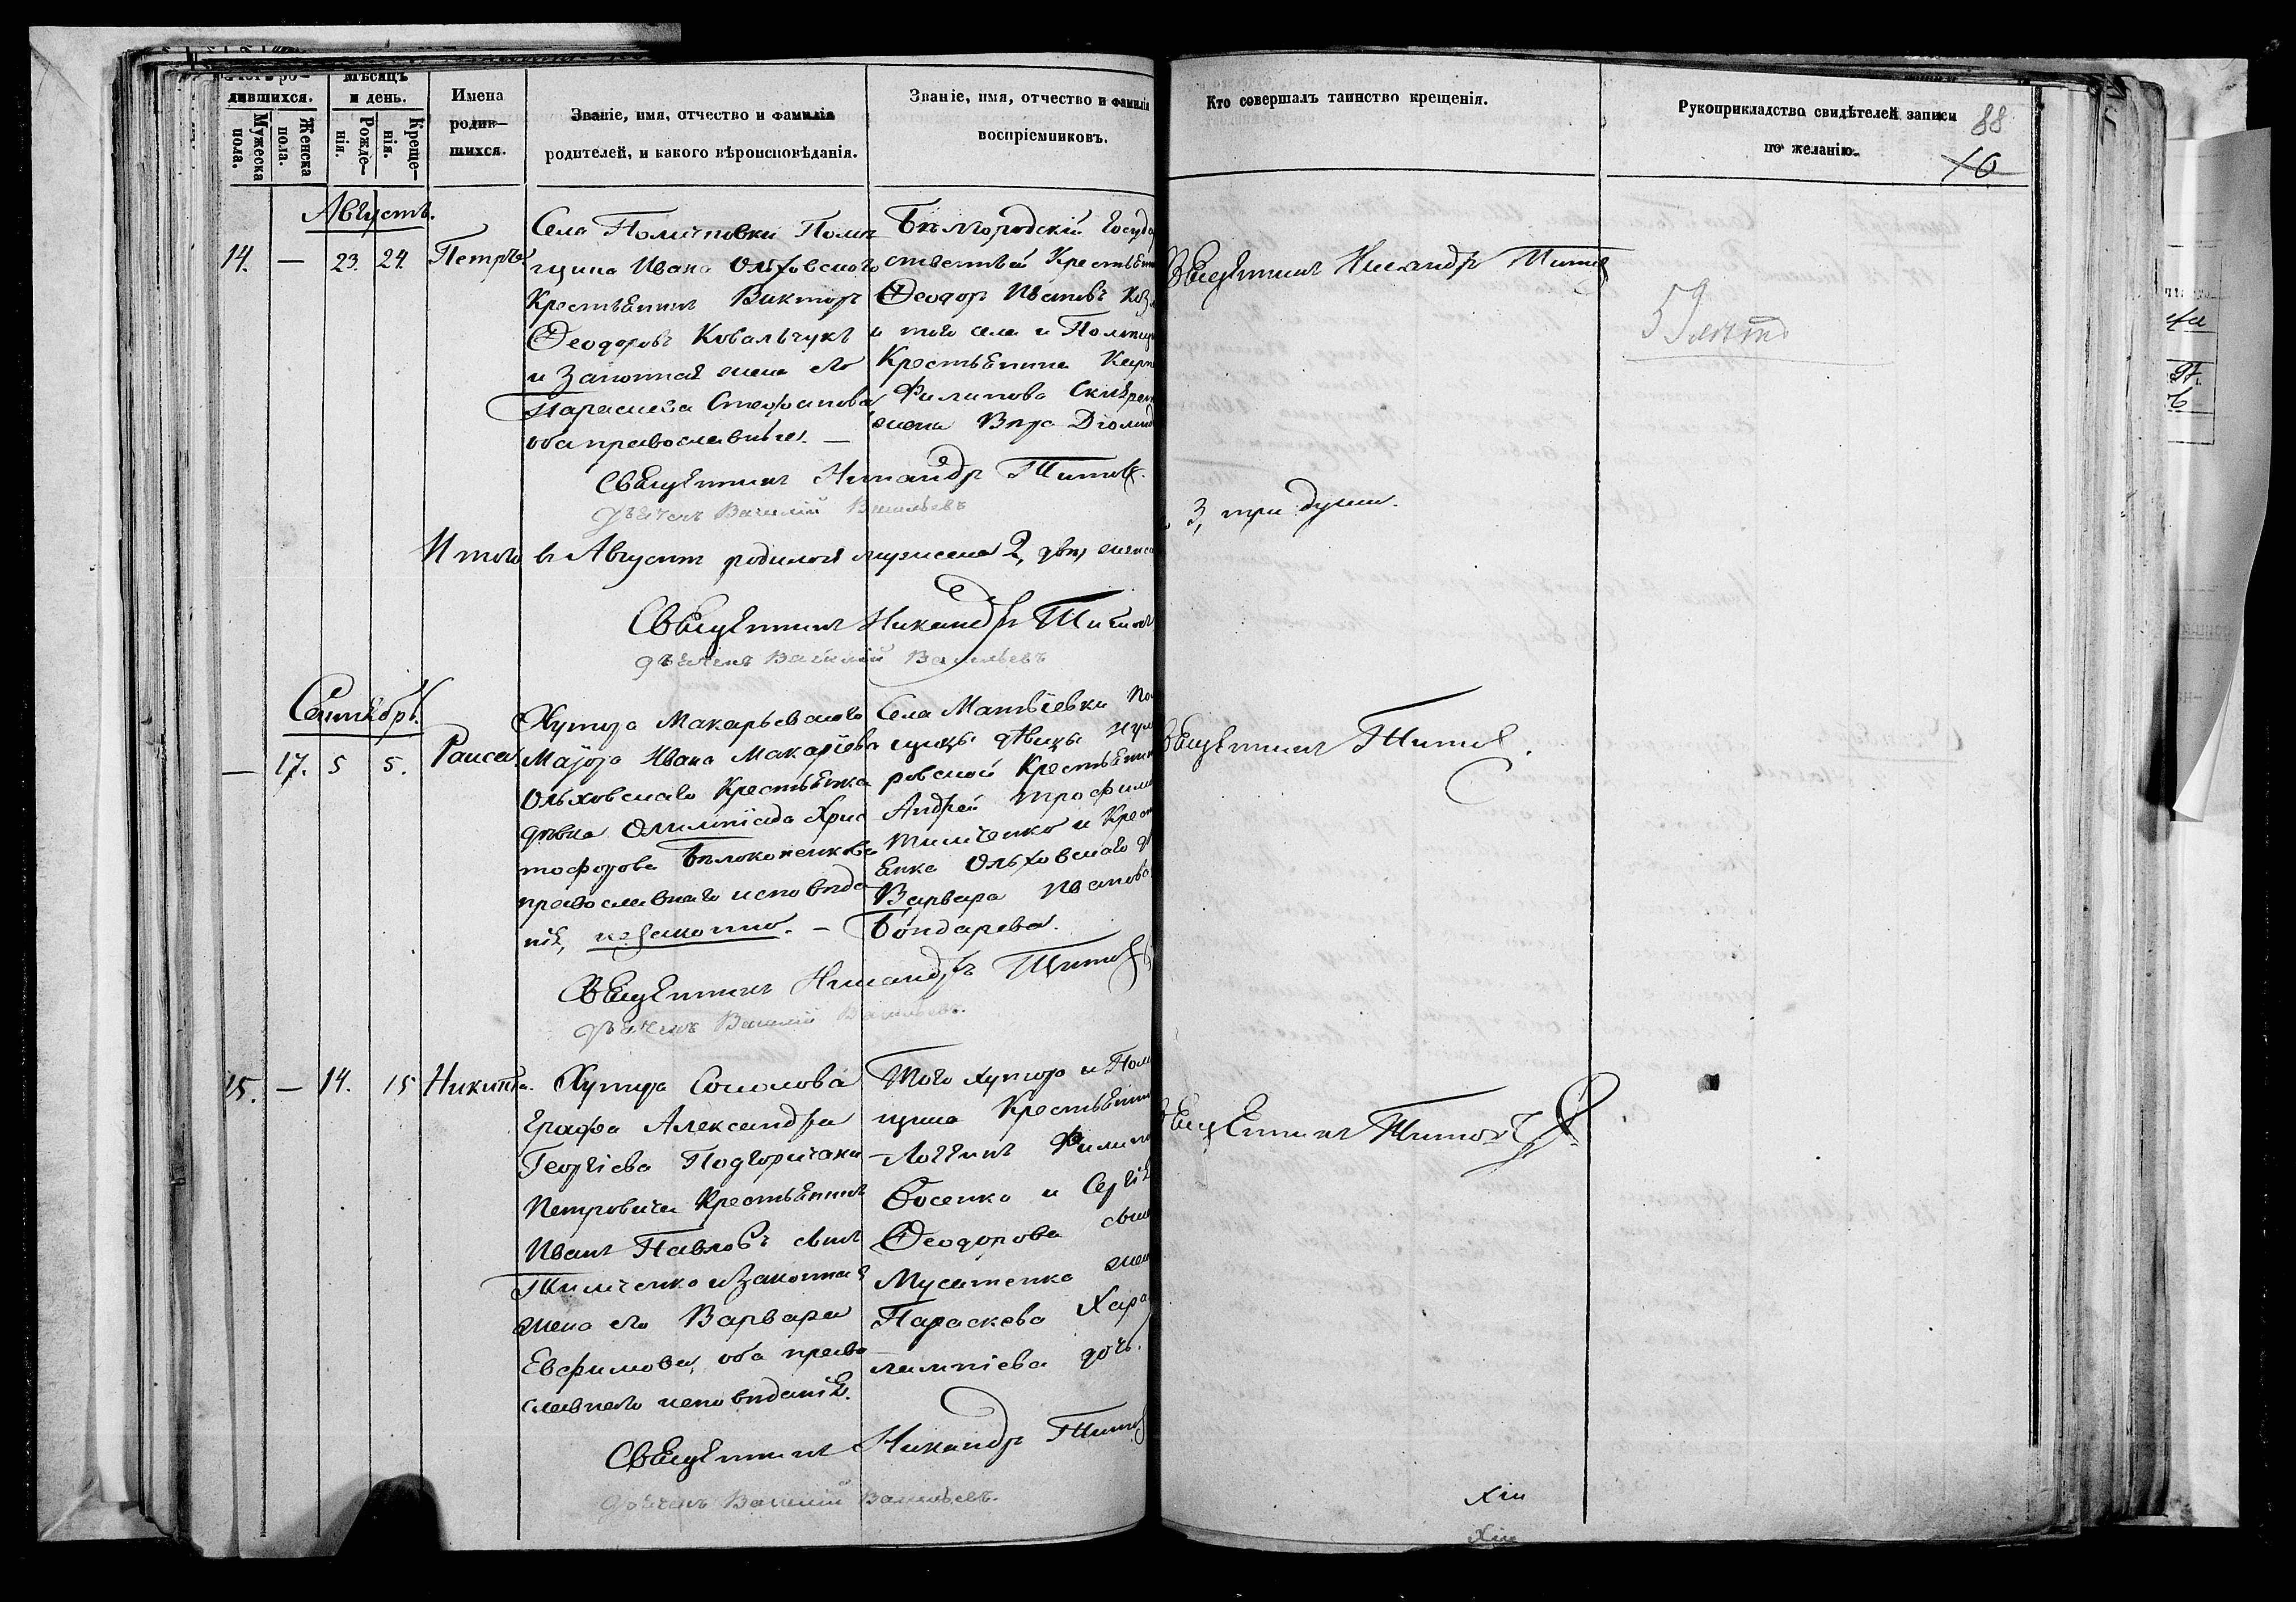 Счетъ ро-
дившихся.
Мужеска пола.
Женска пола.
Мѣсяцъ
и день.
Рожде-
нія.
Креще-
нія.
Имена
родив-
шихся.
Званіе, имя, отчество и фамилія
родителей, и какого вѣроисповѣданія.
Званіе, имя, отчество и фамилія
воспріемниковъ.
Кто совершалъ таинство крещенія.
Рукоприкладство свидѣтелей записи
по желанію.
88
Августъ.
14. — 23. 24. Петръ
Села
щика Ивана Ольховскаго
Крестьянинъ Викторъ
Ѳеодоровъ Ковальчукъ
и Законная жена его
Параскева Стефанова
оба православные. —
Бѣлгородскій Госуда
ственный Крестьян
Ѳеодоръ Ивановъ Коз
и того села и Помѣщ
Крестьянина
Филипова
жена Вѣра
Священникъ Никандръ Титовъ
59
Священникъ Никандръ Титовъ.
дьячекъ Василій Васильевъ
Итого въ Августѣ родилося мужеска 2, два, женс
3, три души.
Священникъ Никандръ Титовъ
дьячекъ Василій Васильевъ
Сентябрь.
— 17. 5 5. Раиса.
Хутора Макарьевскаго
Маіора Ивана Макаріева
Ольховскаго Крестьянка
дѣвка Олимпіада Хрис
тофорова Бѣлоконенкова
православнаго исповѣда
нія, незаконно. —
Села Матвѣевки По
щицы дѣвицы
ровской Крестьянин
Андрей Трофим
Тимченко и Крест
янка Ольховскаго д
Варвара Иванова
Бондарева.
вященникъ Титовъ.
Священникъ Никандръ Титовъ
дьячекъ Василій Васильевъ.
15. — 14. 15 Никита.
Хутора Соколова
Графа Александра
Георгіева Подгоричани
Петровича Крестьянинъ
Иванъ Павловъ сынъ
Тимченко и Законная
жена его Варвара
Евфимова, оба право
славнаго исповѣданія.
Того хутора и Пом
щика Крестьяни
Логгинъ Филипо
Босенко и Сергія
Ѳеодорова сын
Мусиенка жен
Параскева Хара
лампіева дочь.
вященникъ Титовъ
Священникъ Никандръ Титовъ
дьячекъ Василій Васильевъ.